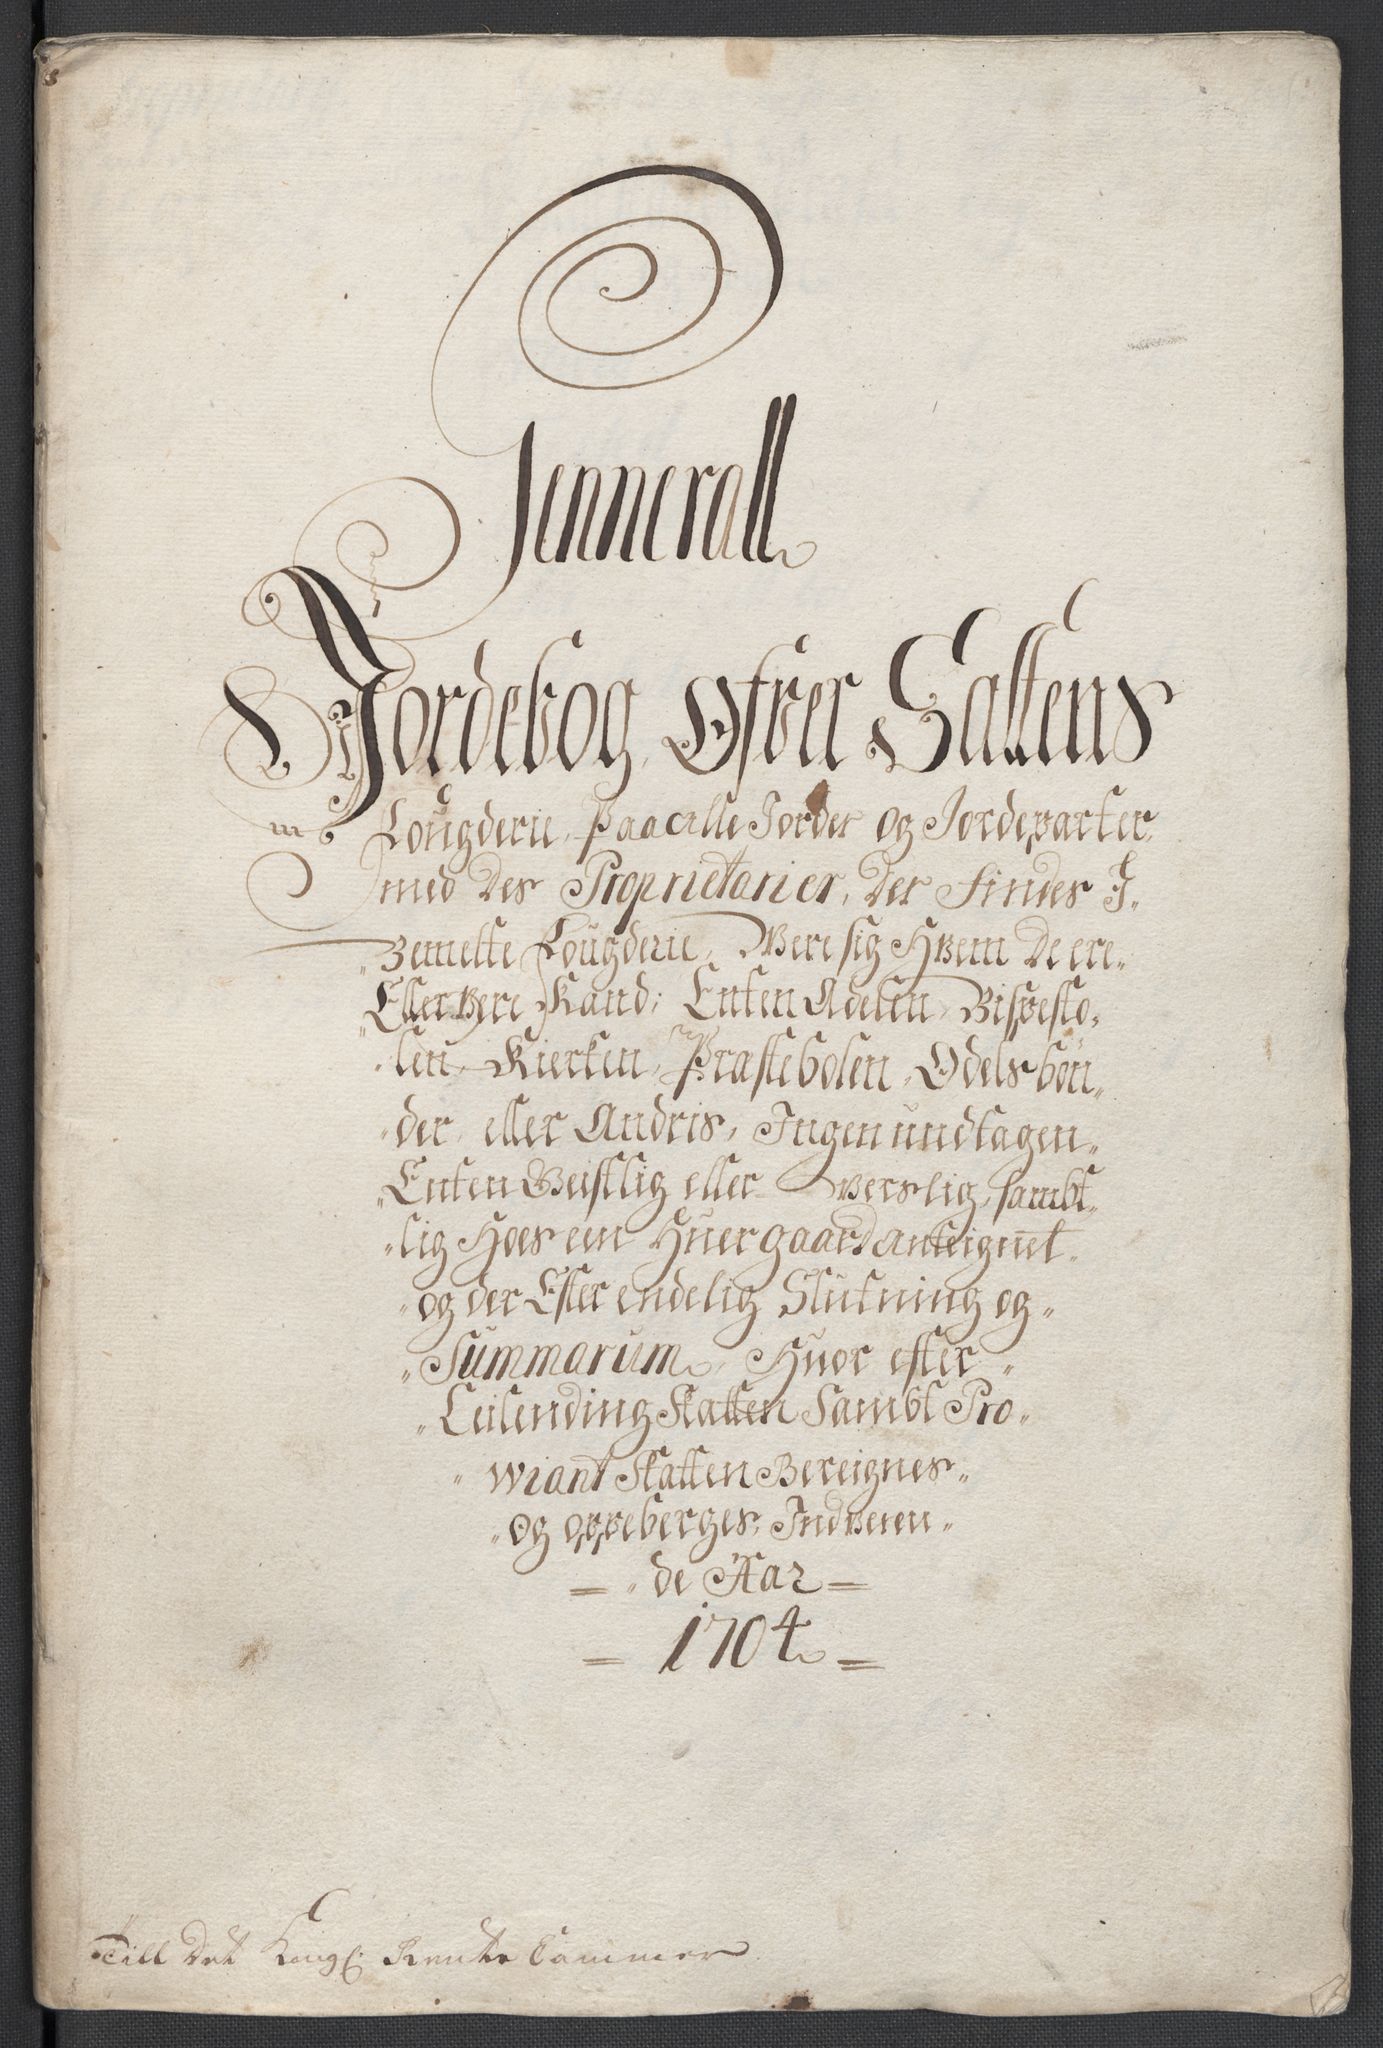 Jennerall
Jordebog Ofver Saltens
Fougderie, Paa alle Jorder og Jordeparter,
med des Proprietarier, der findes J-
Bemelte Fougderie, Were sig Hvem de ere-
Eller Vere Kand, Enten Adelen, Bispesto-
len, Kierken, Præstebolen, Odelsbøn-
der, eller Andris, Ingen undtagen-
Enten Geistlig eller Verslig, sambt-
lig Hoes een Huer gaard anteignet-
og der Efter endelig Slutning og-
Summarum, Huor efter-
Leilending Skatten Sambt Pro-
wiant Skatten Bereignes-
og oppeberges, Indveren-
de Aar
1704
Till Det Kongl: Rente Cammer